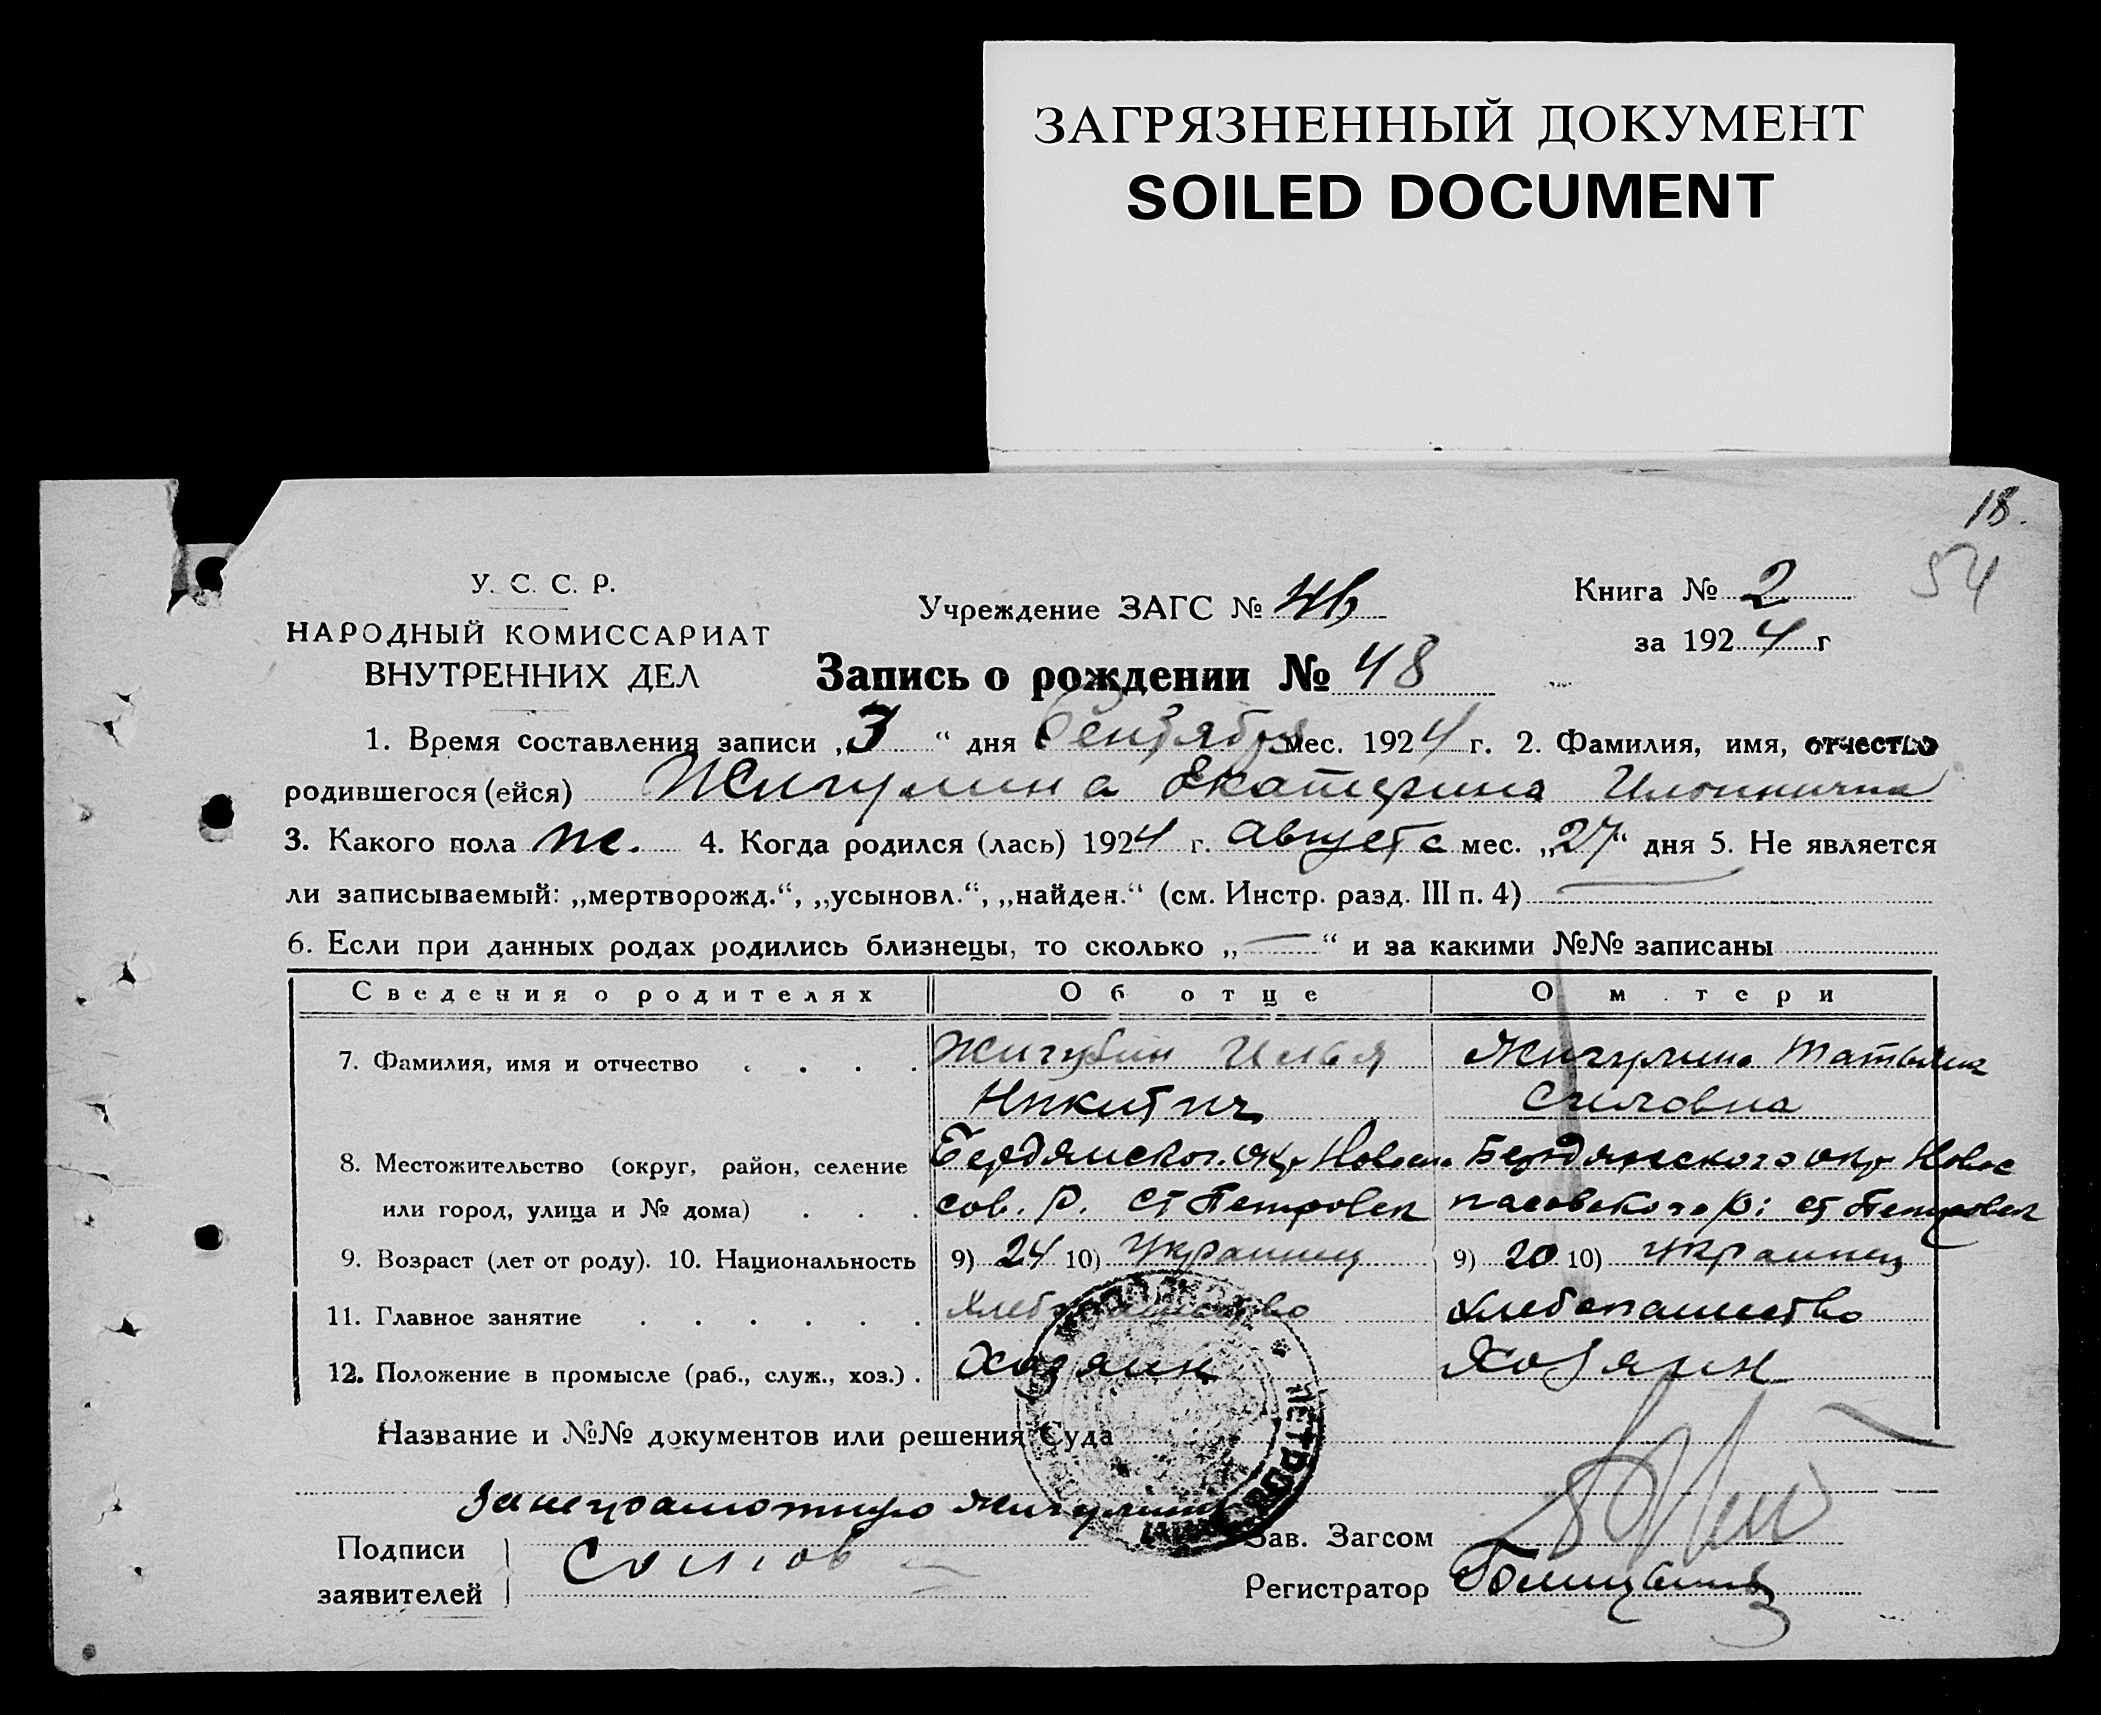 ЗАГРЯЗНЕННЫЙ ДОКУМЕНТ
SOILED DOCUMENT
18.
54
У. С. С. Р.
НАРОДНЫЙ КОМИССАРИАТ
ВНУТРЕННИХ ДЕЛ
Учреждение ЗАГС №
Книга № 2
за 1924 г
Запись о рождении № 48
1. Время составления записи „3“ дня Сентября мес. 1924 г. 2. Фамилия, имя, отчество
родившегося (ейся) Жигулина Екатерина
3. Какого пола ж. 4. Когда родился (лась) 1924 г. Августа мес. „27“ дня 5. Не является
ли записываемый: „мертворожд.“, „усыновл.“, „найден.“ (см. Инстр. разд. III п. 4)
6. Если при данных родах родились близнецы, то сколько „—“ и за какими №№ записаны
Сведения о родителях Об отце О м тери
7. Фамилия, имя и отчество Илья Жигулина Татьяна
Никитич
8. Местожительство (округ, район, селение Бердянског. окр Бердянского окр Новос
или город, улица и № дома) сов. р. ст Петровск пасовского р: ст Петровск
9. Возраст (лет от роду). 10. Национальность 9) 24 10) Украинец 9) 20 10) Украинец
11. Главное занятие Хлебопашество Хлебопашество
12. Положение в промысле (раб., служ., хоз.) Хозяин Хозяин
Название и №№ документов или решения Суда
За неграмотную Жигулину
Подписи
заявителей
Зав. Загсом
Регистратор